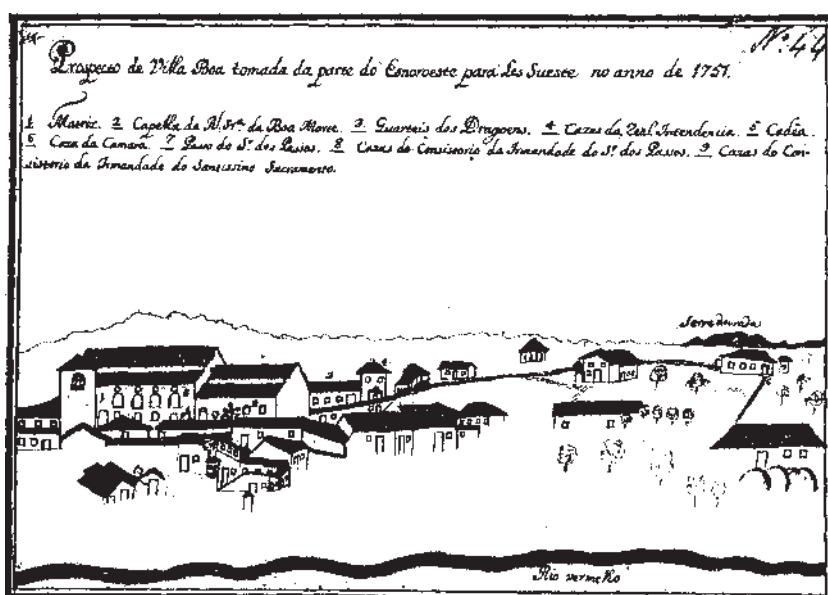 Nº 44
Prospecto de Villa Boa tomada da parte do Esnoroeste para Les Sueste no anno de 1751.
1 Matriz. 2 Capella de N. Srª. da Boa Morte. 3 Quarteis dos Dragoens. 4 Cazas da Real Intendencia. 5 Cadêa.
6 Caza da Camara. 7 Passo do Sr. dos Passos. 8 Cazas do Consistorio da Irmandade do Sr. dos Passos. 9 Cazas do Con-
sistorio da Irmandade do Santissimo Sacramento.
Serra dourada
3
4
Rio vermelho